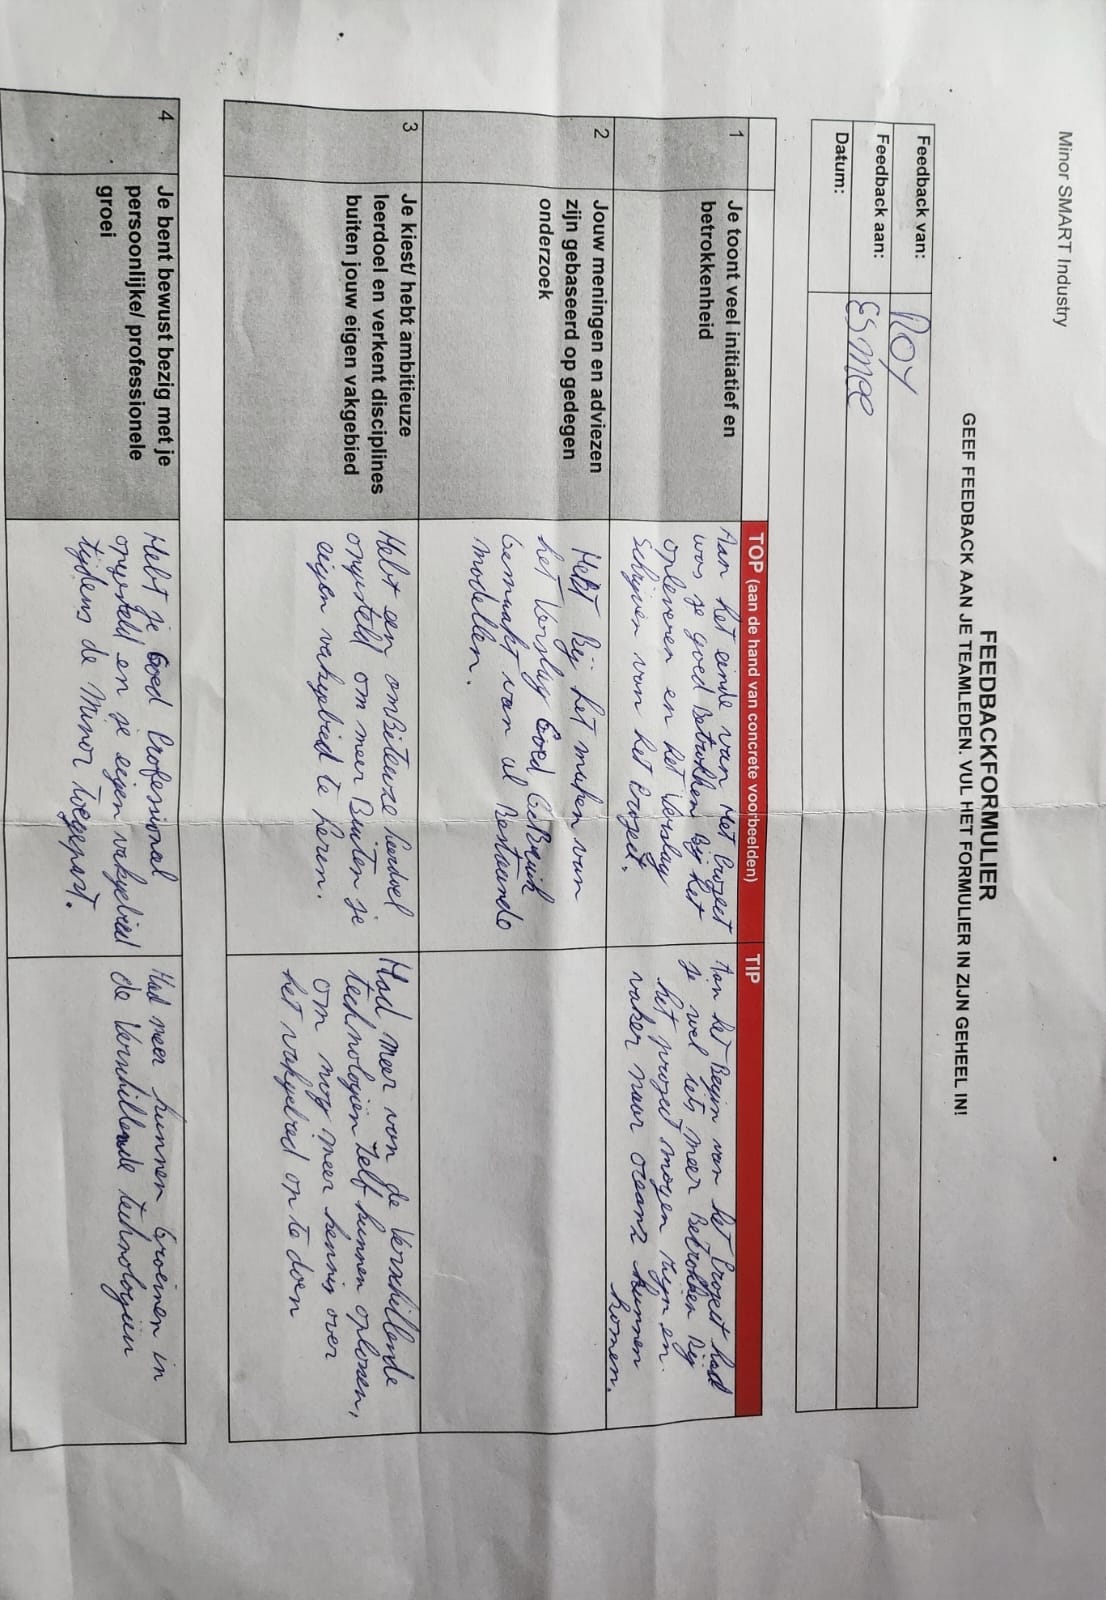 Minor SMART Industry
FEEDBACKFORMULIER
GEEF FEEDBACK AAN JE TEAMLEDEN. VUL HET FORMULIER IN ZIJN GEHEEL IN!
Feedback van: ROY
Feedback aan: Esmee
Datum:
TOP (aan de hand van concrete voorbeelden)
TIP
1
Je toont veel initiatief en
betrokkenheid
Aan het einde van Het Project
was je goed Betrokken Bij het
opleveren en het Verslag
Schrijven van het Project.
Aan het Begin van het Project had
je wel iets meer Betrokken Bij
het project mogen zijn en
vaker naar oceanz kunnen
komen.
2
Jouw meningen en adviezen
zijn gebaseerd op gedegen
onderzoek
Hebt Bij het maken van
het Verslag Goed Gebruik
Gemaakt van al Bestaande
modellen.
3
Je kiest/ hebt ambitieuze
leerdoel en verkent disciplines
buiten jouw eigen vakgebied
Hebt een ambiteuze leerdoel
opgesteld om meer Buiten je
eigen vakgebied te leren.
Had meer van de Verschillende
technologiën zelf kunnen oplossen,
om nog meer kennis over
het vakgebied op te doen
4
Je bent bewust bezig met je
persoonlijke/ professionele
groei
Hebt je Goed Professional
opgesteld en je eigen vakgebied
tijdens de Minor toegepast.
Had meer kunnen Groeinen in
de Verschillende technologiën